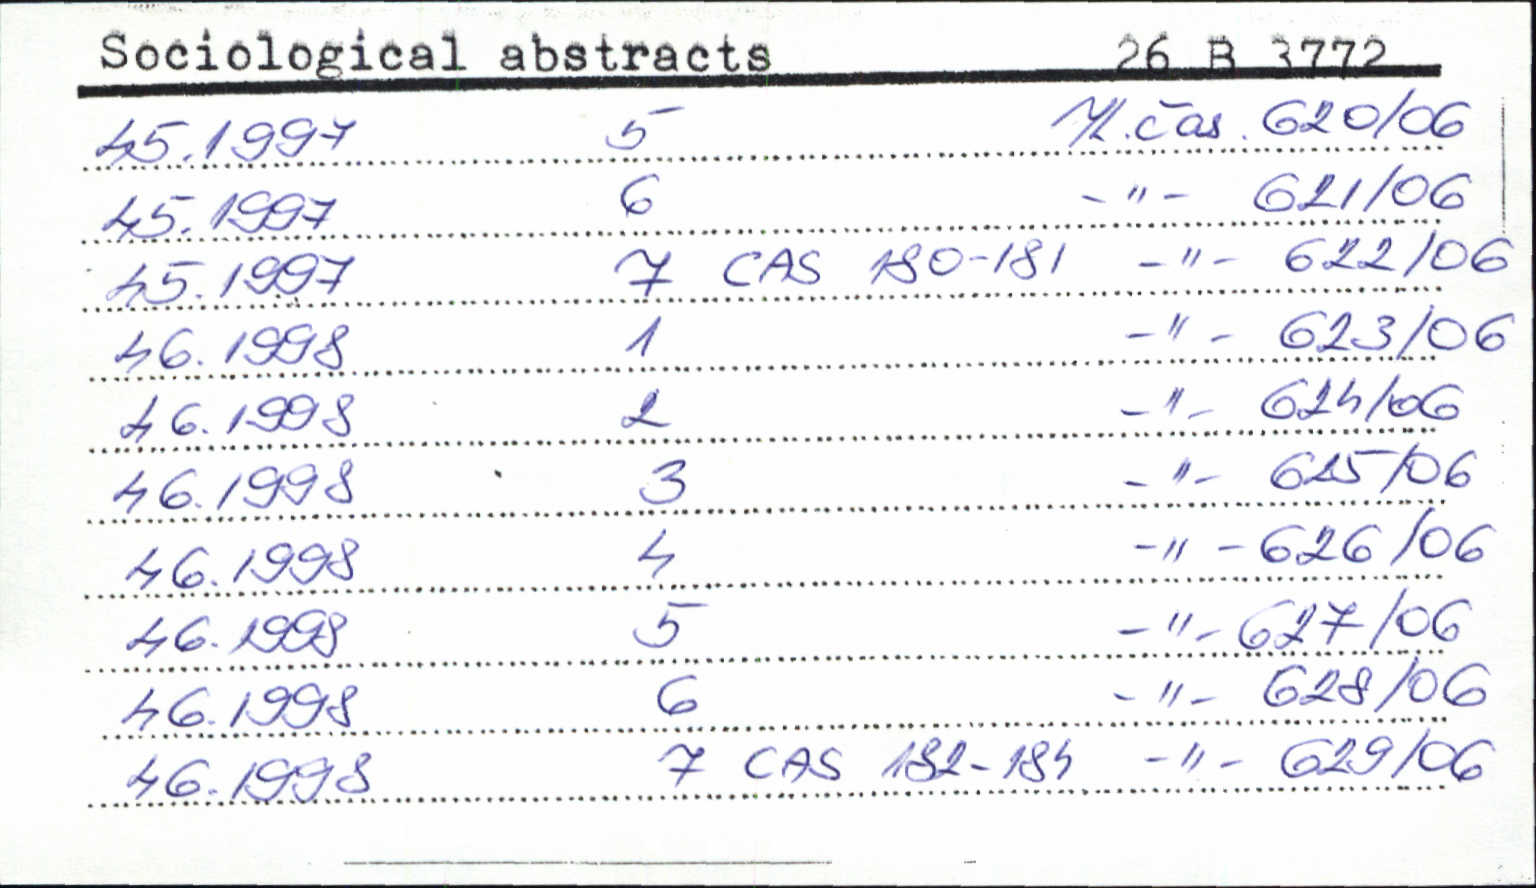 Sociological abstracts 26 B 3772
45.1997 5 Yl.čas. 620/06
45.1997 6 -"- 621/06
45.1997 7 CAS 180-181 -"- 622/06
46.1998 1 -"- 623/06
46.1998 2 -"- 624/06
46.1998 3 -"- 625/06
46.1998 4 -"- 626/06
46.1998 5 -"- 627/06
46.1998 6 -"- 628/06
46.1998 7 CAS 182-184 -"- 629/06